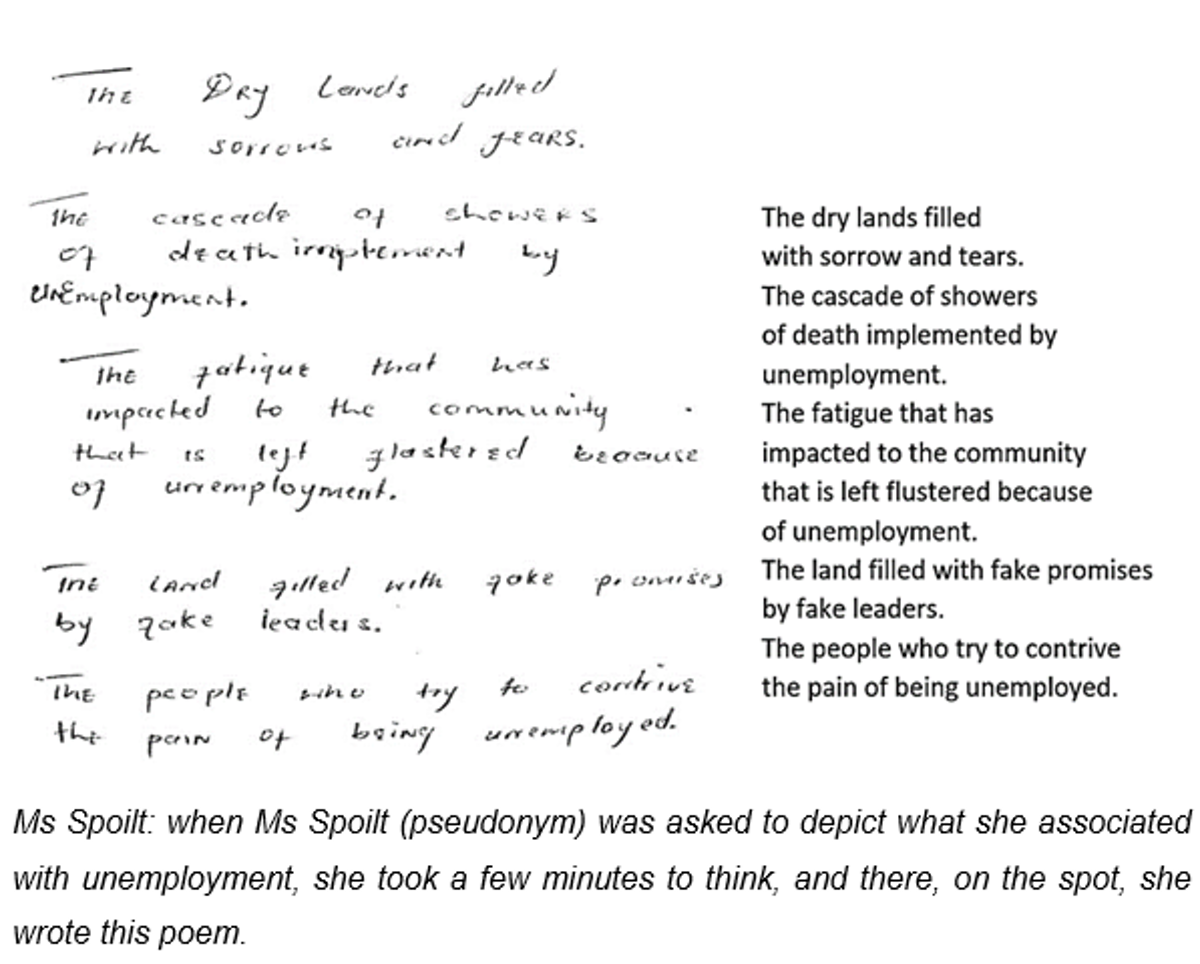 The Dry Lands filled
with sorrows and fears.
The cascade of showers
of death implement by
unemployment.
The fatigue that has
impacted to the community
that is left flastered because
of unemployment.
The land filled with fake promises
by fake leaders.
The people who try to contrive
the pain of being unemployed.
The dry lands filled
with sorrow and tears.
The cascade of showers
of death implemented by
unemployment.
The fatigue that has
impacted to the community
that is left flustered because
of unemployment.
The land filled with fake promises
by fake leaders.
The people who try to contrive
the pain of being unemployed.
Ms Spoilt: when Ms Spoilt (pseudonym) was asked to depict what she associated
with unemployment, she took a few minutes to think, and there, on the spot, she
wrote this poem.